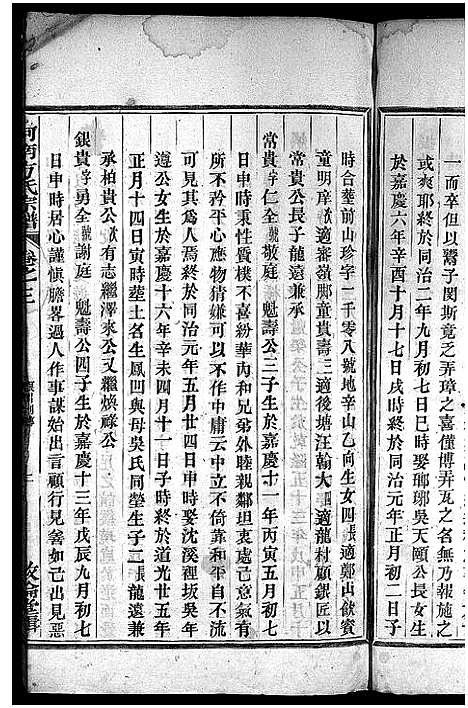 一而卒以瞽子閔斯竟之弄璋之名是僅博弄瓦之名無乃報施之
或爽耶終於同治二年九月初七日巳時娶瑯琊吳天頤公長女生
於嘉慶六年辛酉十月十七日戌時終於同治元年正月初二日子
時合塟前山珍字一千零八號地辛山乙向生女四長適鄭山飲賓
童明庠次適審嶺脚童貴壽三適後塘汪翰大四適龍村顧銀匠以
常貴公長子龍遠兼承
常貴字仁全號敬庭 魁壽公三子生於嘉慶十一年丙寅五月初七
日申時秉性質樸不喜紛華內和兄弟外睦親鄰坦衷處己意氣有
所不矜平心應物猜嫌可以不作中庸云中立不倚靠和平自不流
可見其爲人焉終於同治元年五月廿四日申時娶沈溪裡坂吳年
遵公女生於嘉慶十六年辛未四月十一日子時終於道光廿五年
正月十四日寅時塟土名生鳳凹與母吳氏同塋生子二長龍遠兼
承柏貴公次有志繼澤來公又繼煥祿公
銀貴字勇全號謝庭 魁壽公四子生於嘉慶十三年戊辰九月初七
日申時居心謹慎膽畧過人作事謀始出言顧行見善如己出見惡
河南方氏宗譜
卷之三
敦倫堂輯